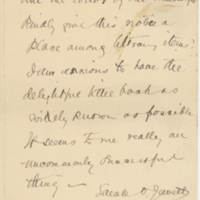 Kindly give this notice a
place among literary items?
I am anxious to have the
delightful little book as
widely known as possible
It seems to me really an
uncommonly successful
thing —
Sarah O. Jewett